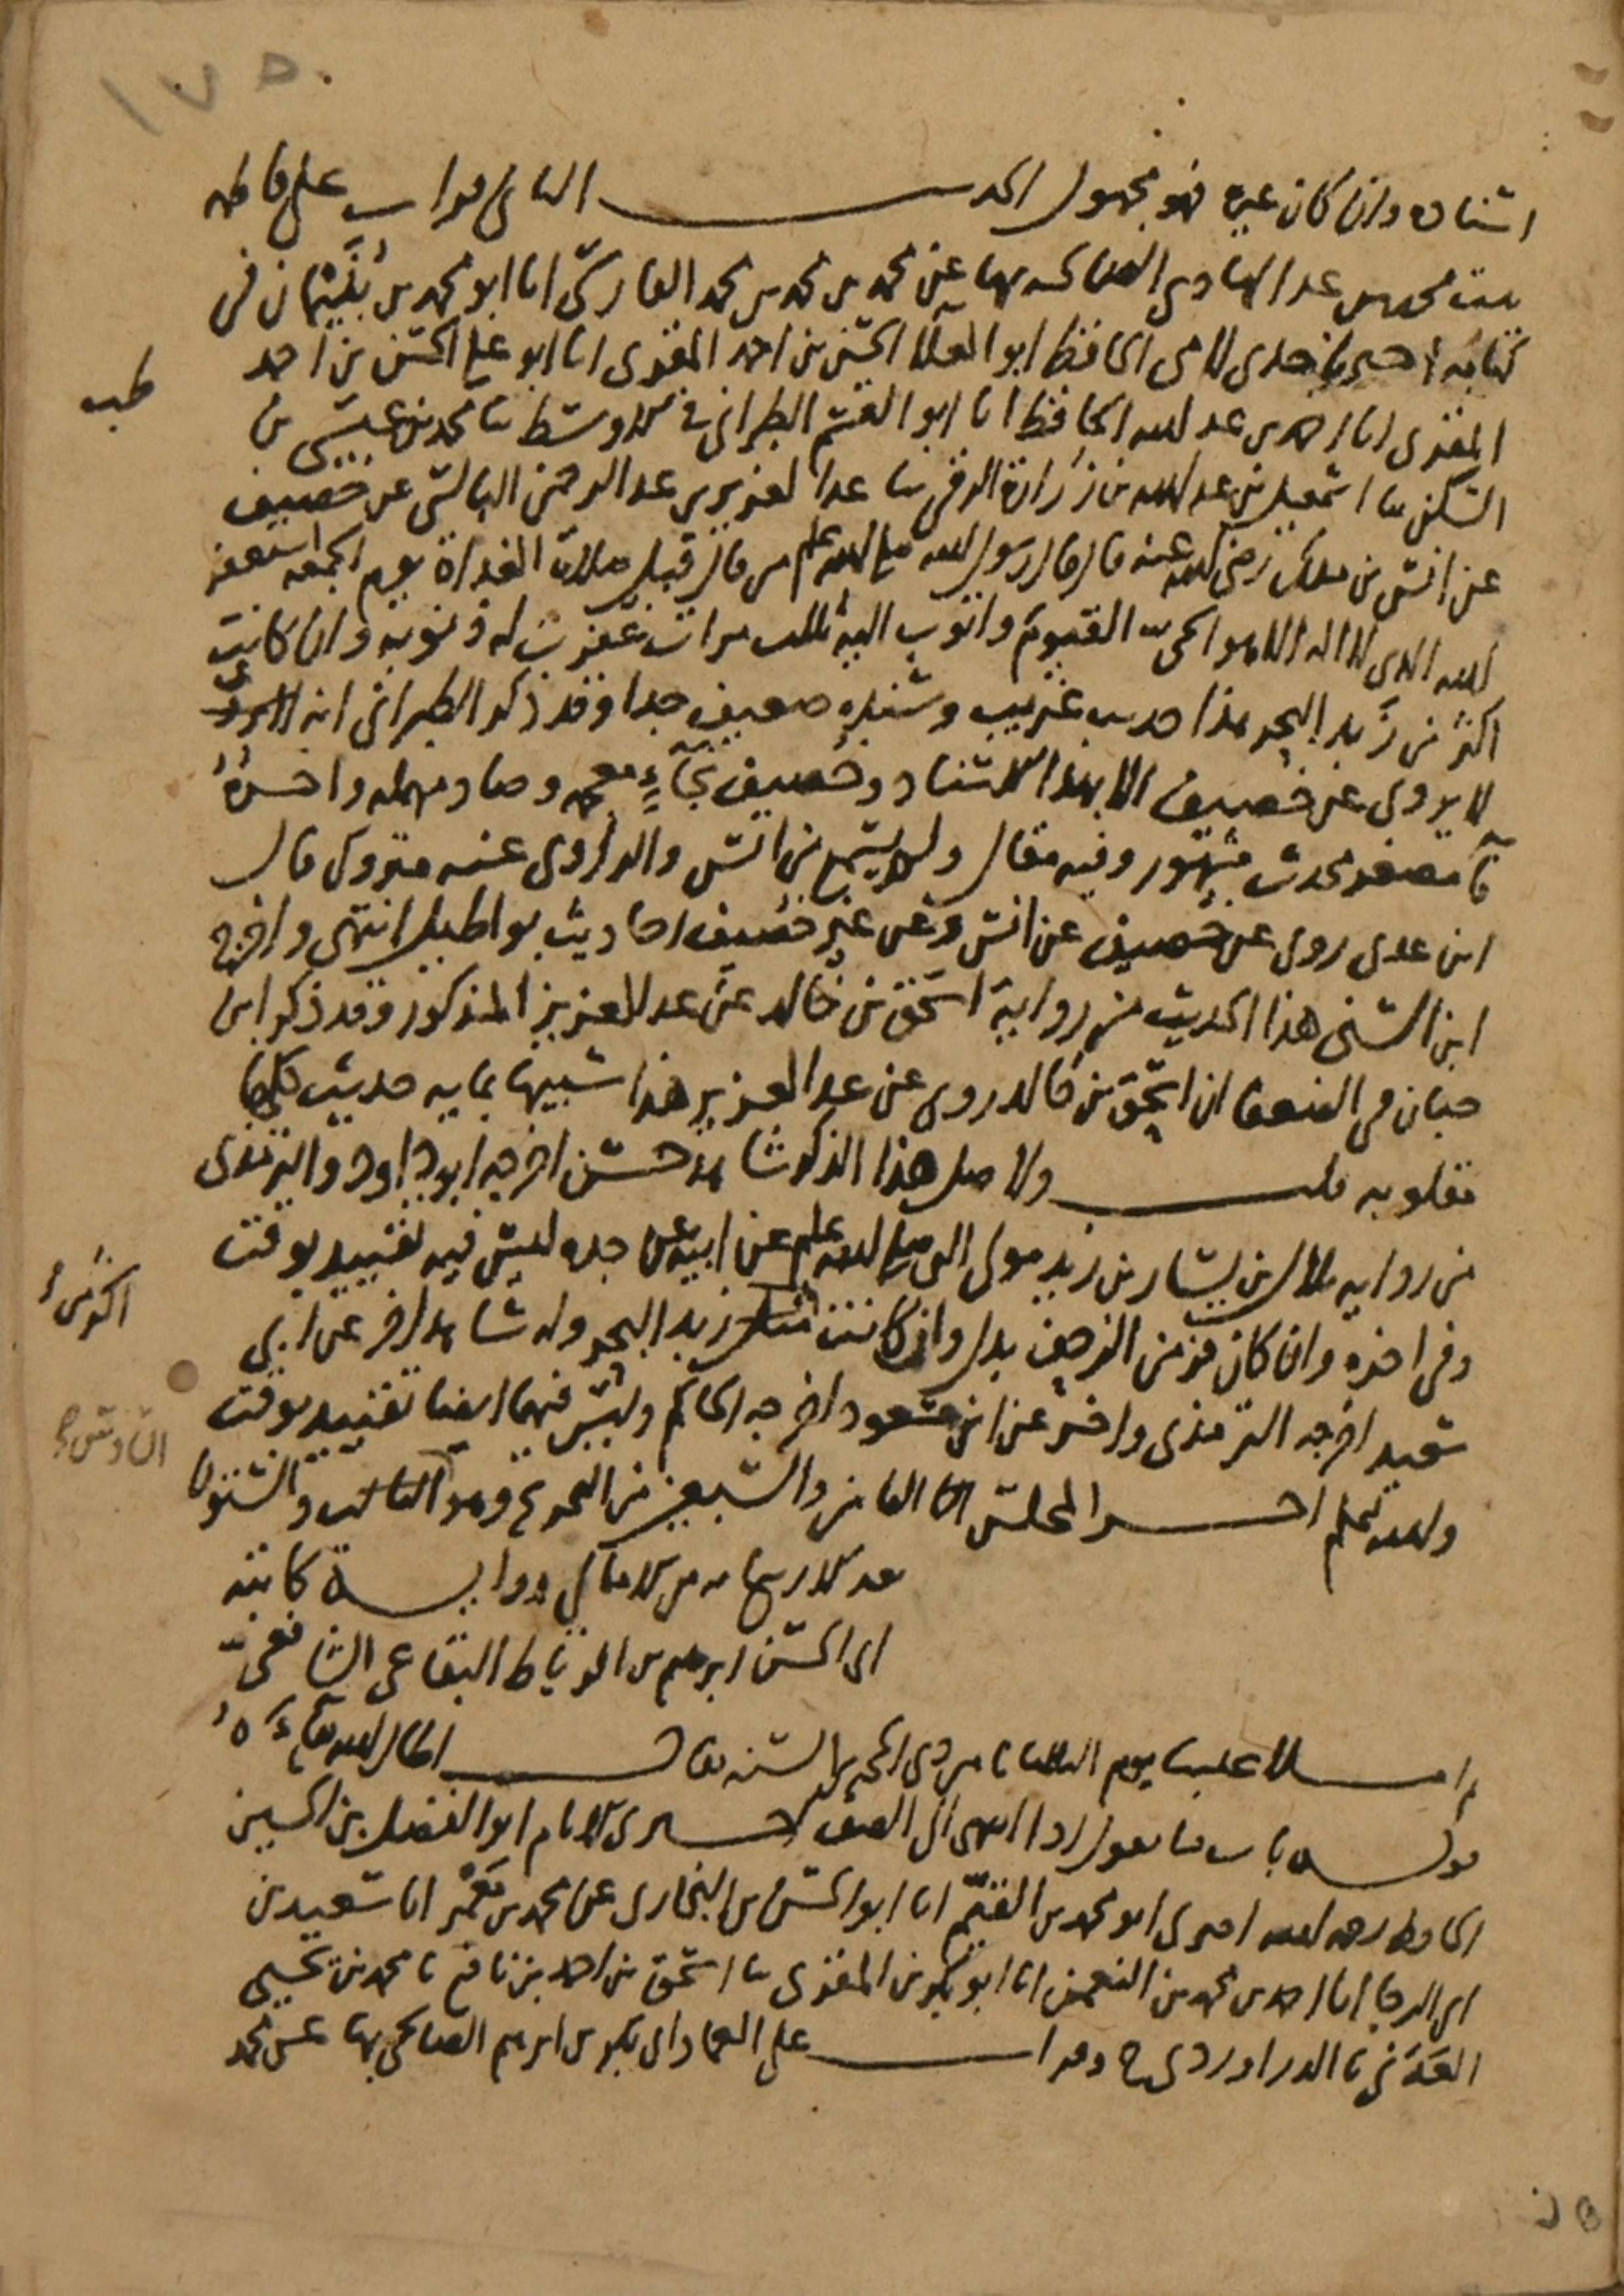 ١٧٥
اسناده وان كان غيره فهو مجهول الحديث الثاني قرات على فاطمه
بنت محمد بن عبد الهادي الصالحيه بها عن محمد بن محمد بن محمد الفارسي انا ابو محمد بن بُنَيْمان في
كتابه اخبرنا جدي لامي الحافظ ابو العلا الحسن بن احمد المقرى انا ابو علي الحسن بن احمد
المقرى انا احمد بن عبد الله الحافظ انا ابو القسم الطبراني في الاوسط ثنا محمد بن عيسى بن
السكن ثنا اسمعيل بن عبد الله بن زرارة الرقي ثنا عبد العزيز بن عبد الرحمن البالسي عن خصيف
عن انس بن ملك رضي الله عنه قال قال رسول الله صلى الله عليه وسلم من قال قبل صلاة الغداة يوم الجمعه استغفر
الله الذي لا اله الا هو الحيّ القيوم واتوب اليه ثلث مرات غفرت له ذنوبه وان كانت
اكثر من زَبد البحر هذا حديث غريب وسنده ضعيف جدا وقد ذكر الطبراني انه
لا يروى عن خصيف الا بهذا الاسناد وخصيف بخاءٍ معجمه وصاد مهمله واخرهُ
فآ مصغر محدث مشهور وفيه مقال ولم يسمع من انس والراوي عنه متروك قال
ابن عدي روى عن خصيف عن انس وعن غير خصيف احاديث بواطيل انتهى واخرج
ابن السني هذا الحديث من رواية اسحق بن خالد عن عبد العزيز المذكور وقد ذكر ابن
حبان في الضعفا ان اسحق بن خالد روى عن عبد العزيز هذا شبيها بمايه حديث كلها
مقلوبه قلت ولاصل هذا الذكر شاهد حسن اخرجه ابو داود والترمذي
من روايه بلال بن يسار بن زيد مولى النبي صلى الله عليه وسلم عن ابيه عن جده ليس فيه تقييد بوقت
وفي اخره وان كان فر من الزحف بدل وان كانت مثل زبد البحر وله شاهد اخر عن ابي
سعيد اخرجه الترمذي واخر عن ابن مسعود اخرجه الحاكم وليس فيهما ايضا تقييد بوقت
والله اعلم اخر المجلس الثامن والسبعين من التخريج وهو الثامن والستون
بعد الاربعمايه من الامالي رواية كاتبه
ابي الحسن ابرهيم بن الرباط البقاعي الشافعيّ
ثم املا علينا يوم الثلاثا ثامن ذي الحجه من السنه فقال اطال الله بقاءَهُ
قوله باب ما يقول اذا انتهى الى الصف اخبرني الامام ابو الفضل بن الحسين
الحافظ رحمه الله اخبرني ابو محمد بن القيّم انا ابو الحسن بن البخاري عن محمد بن مَعْمَر انا سعيد بن
ابي الرجا انا احمد بن محمد بن النعمن انا ابو بكر بن المقرى ثنا اسحق بن احمد بن نافع ثنا محمد بن يحيى
العَدَني ثنا الدراوردي ح وقرات على العماد ابي بكر بن ابرهيم الصالحي بها عن محمد
طب
السادس